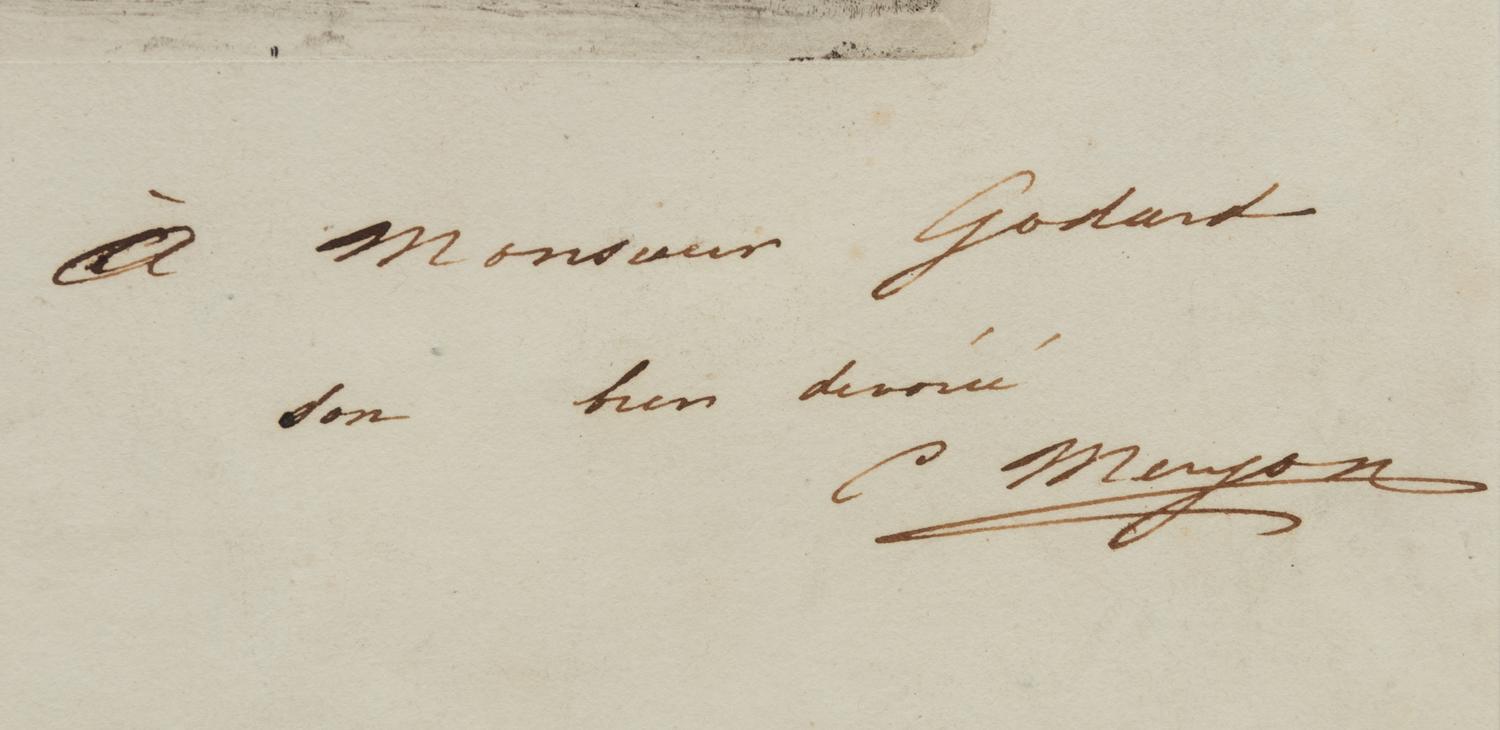 À Monsieur Godard
son bien dévoué
C Meryon